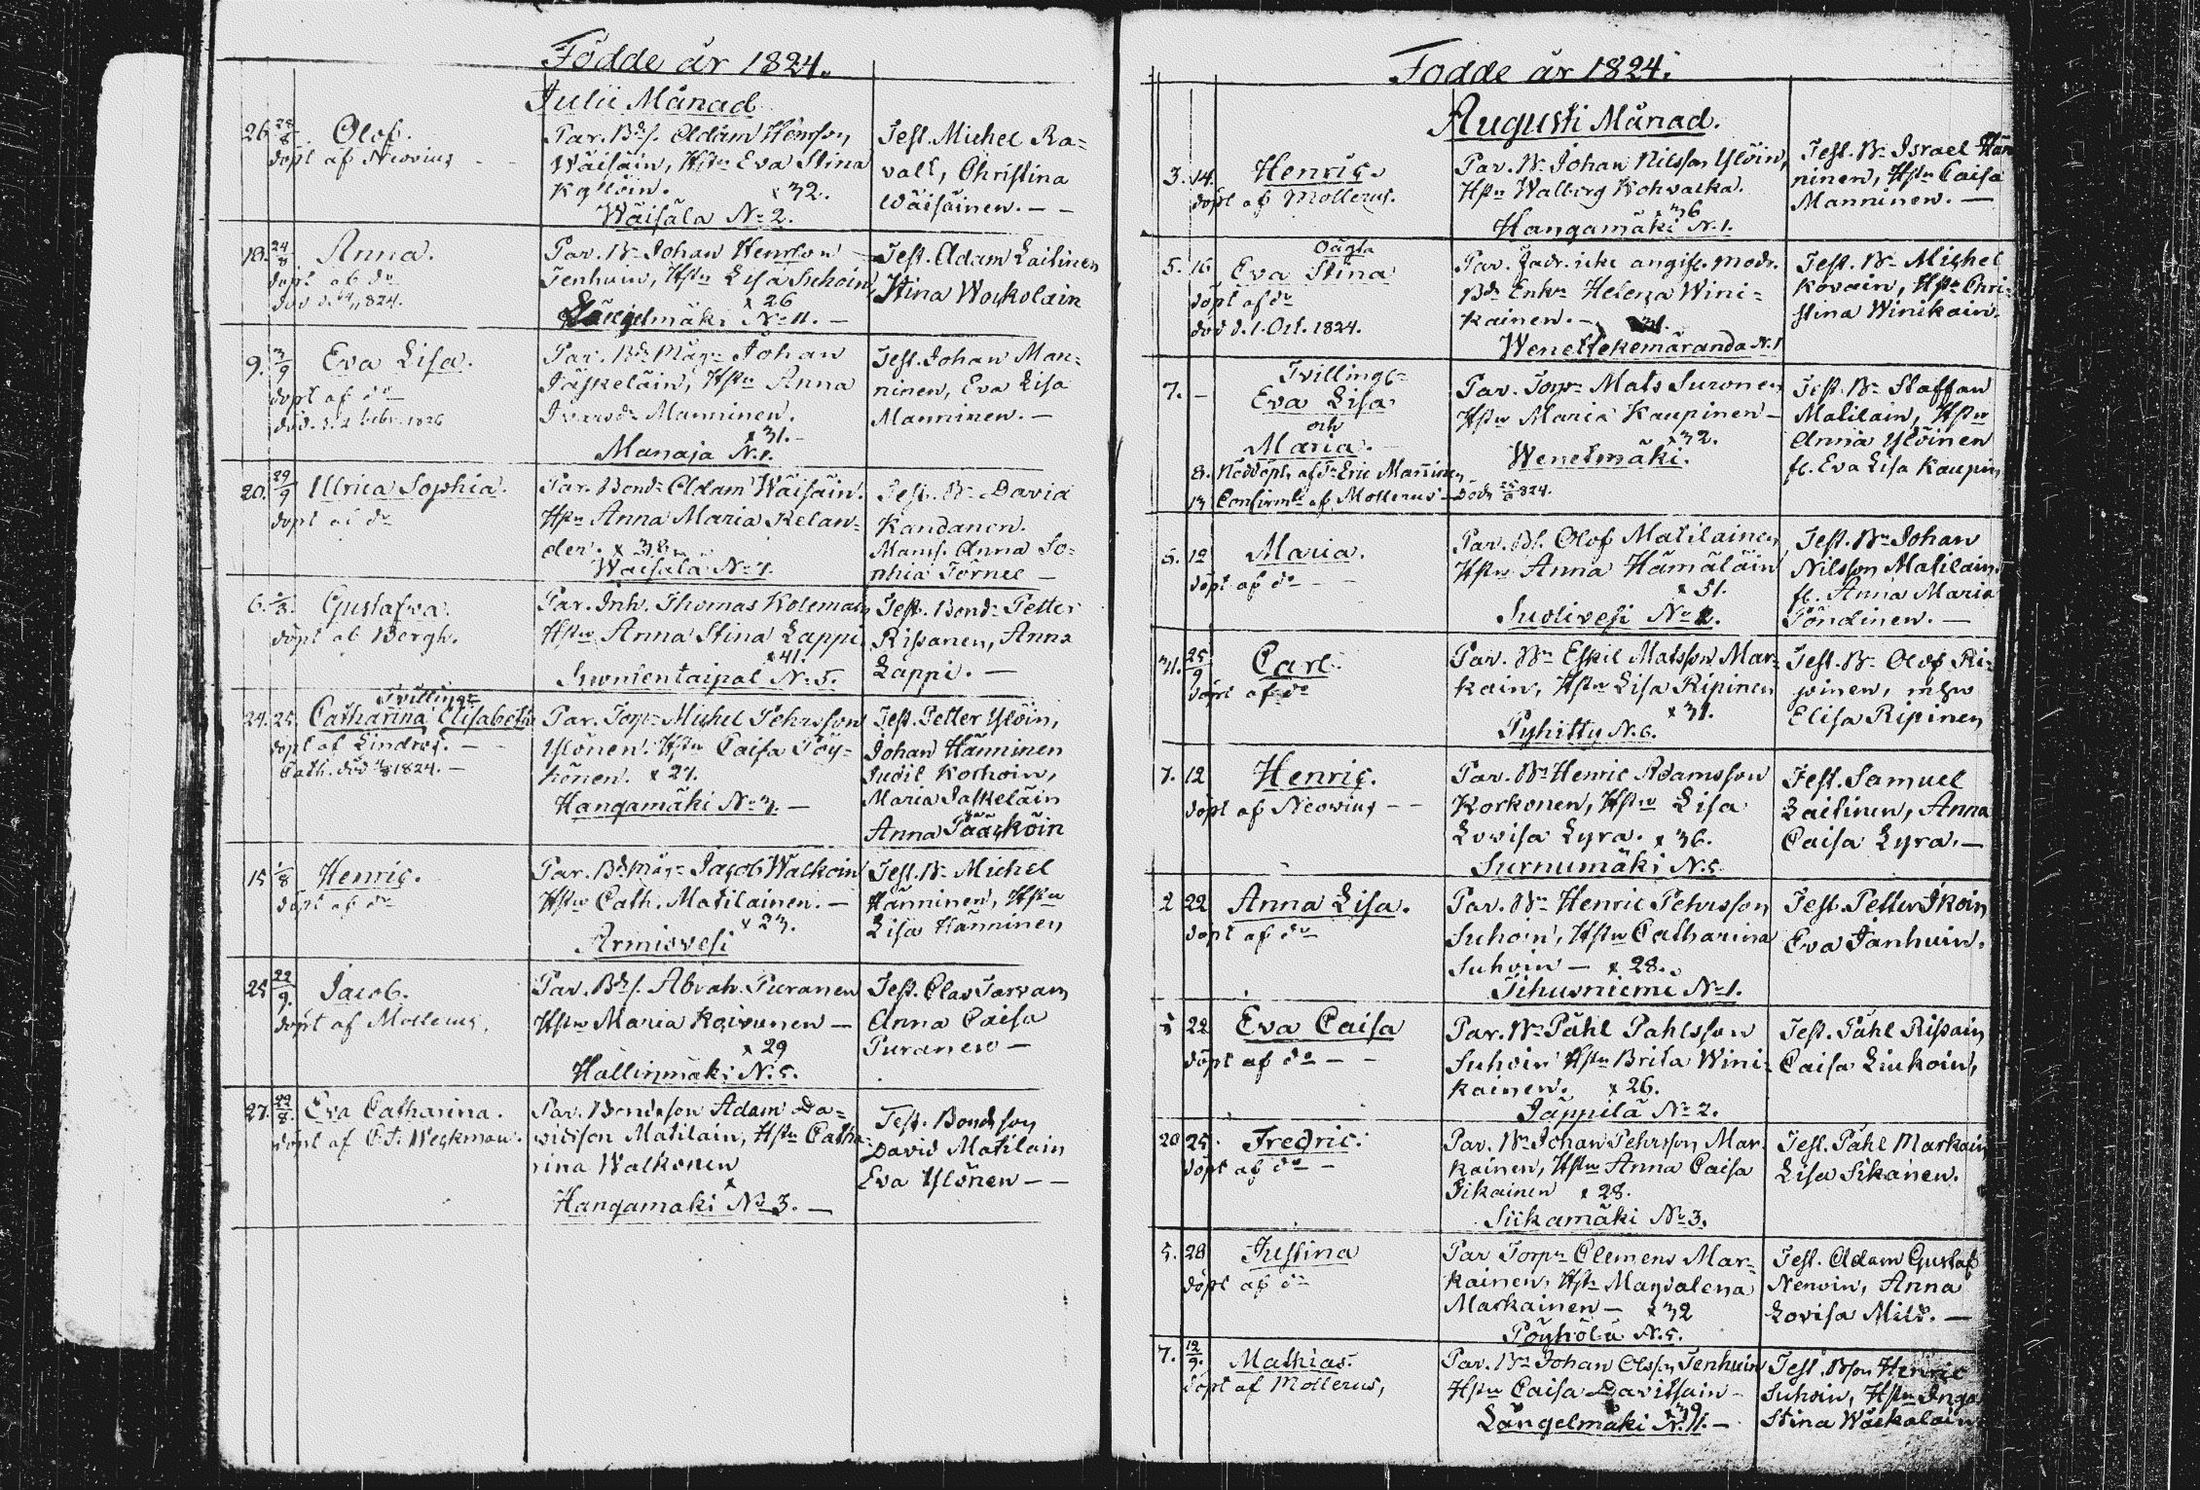 Födde år 1824.
Julii Månad
26. 28/8 Olof.
döpt af Neovius
Par. Bds. Adam Hemson
Wäisäin, Hstr Eva Stina
x 32.
Wäisälä No 2.
Test. Michel Ra=
vall, Christina
Wäisäinen. — —
18. 24/8 Anna.
döpt af do
Par. Bn Johan Henrson
Tenhuin, Hstr Lisa Suhoin
x 26
Längelmäki No 11. —
Test. Adam Laitinen
Stina Wockolain
9. 3/9 Eva Lisa.
döpt af do
död. d. 2 Febr. 1826
Par. Bds Mågn Johan
Jäskeläin, Hstr Anna
Ivarsdr Manninen.
x 31. —
Manaja N.1.
Test. Johan Man=
ninen, Eva Lisa
Manninen. —
20. 29/9 Ulrica Sophia.
döpt af do
Par. Bond. Adam Wäisäin.
Hstr Anna Maria Kelan=
der. x 38.
Wäisälä No 1.
Test. Bn David
Kandanen.
Mams. Anna So=
phia Törne —
6. 1/8. Gustafva.
döpt af Bergh.
Par. Inh. Thomas Kolemain
Hstr Anna Stina Lappi.
x 41.
Suontentaipal No 5.
Test. Bond. Petter
Rissanen, Anna
Lappi. —
Tvillingr
24. 25. Catharina Elisabeth
döpt af Lindros. —
Cath. död 1824. —
Par. Torpr Michel Pehrsson
Ylönen. Hstr Caisa Pöy=
hönen. x 27.
Hangamäki No 4. —
Test. Petter Ylöin,
Johan Hänninen
Judit Korhoin,
Maria Jaskeläin
Anna Pääsköin
15 1/8 Henric.
döpt af do
Par. Bds Mågr Jacob Walkoin
Hstr Cath. Matilainen. —
x 23.
Armisvesi
Test. Bn Michel
Hänninen, Hstr
Lisa Hänninen
25 22/9. Jacob.
döpt af Mollerus,
Par. Bds. Abrah. Puranen
Hstr Maria Koivunen —
x 29
Hällinmäki N.5.
Test. Olav Tarvain
Anna Caisa
Puranen —
27. 22/8. Eva Catharina.
döpt af C.J. Weckman.
Par. Bondeson Adam Da=
vidsson Matilain, Hstr Catha=
rina Walkonen
x
Hangamäki No 3. —
Test. Bondson
David Matilain
Eva Ylönen — —
Födde år 1824.
Augusti Månad.
3. 14. Henric.
döpt af Mollerus.
Par. Bn Johan Nilsson Ylöin,
Hstr Walborg Kohvacka.
x 36
Hangamäki N.1.
Test. Bn Israel Hän
ninen, Hstr Caisa
Manninen. —
Oägta
5. 16 Eva Stina
döpt af do
död d. 1. Oct. 1824.
Par. Fadr. icke angifv. Modr.
Bds Enka Helena Wini=
kainen. —
Wenetekemäranda N.1
Test. Bn Michel
Kovain, Hstr Chri=
stina Winikain.
Tvillingr
7. – Eva Lisa
och
Maria.
8. Nöddöpt af Sn Eric Manninen,
13 Confirmt af Mollerus — döde 25/8 824.
Par. Torpr Mats Suronen
Hstr Maria Kaupinen —
x 32.
Wenetmäki.
Test. Bn Staffan
Matilain, Hstr
Anna Ylöinen
fl. Eva Lisa Kaupin
5. 12 Maria.
döpt af do — —
Par. Bds. Olof Matilainen
Hstr Anna Hämäläin
x 31.
Suolivesi No 2.
Test. Bn Johan
Nilsson Matilain.
fl. Anna Maria
Pöndinen. —
31. 25/9 Carl.
döpt af do
Par. Bn Eskil Matsson Mar=
kain, Hstr Lisa Ripinen
x 31.
Pyhitty N.6.
Test. Bn Olof Ri=
pinen,
Elisa Ripinen
7. 12 Henric.
döpt af Neovius — —
Par. Bn Henric Adamsson
Korkonen, Hstr Lisa
Lovisa Lyra. x 36.
Surnumäki N.5
Test. Samuel
Laitinen, Anna
Caisa Lyra. —
2 22 Anna Lisa.
döpt af do
Par. Bn Henric Pehrsson
Suhoin, Hstr Catharina
Suhoin — x 28.
Tihusniemi No 1.
Test. Petter Ikoin
Eva Janhuin.
5 22 Eva Caisa
döpt af do — —
Par. Bn Påhl Pahlsson
Suhoin Hstr Brita Wini=
kainen. x 26.
Jäppilä No 2.
Test. Påhl Rissain
Caisa Liukoin,
20 25. Fredric.
döpt af do —
Par. Bn Johan Pehrsson Mar
kainen, Hstr Anna Caisa
Sikainen x 28.
Siikamäki No 3.
Test. Påhl Markain
Lisa Sikanen.
5. 28 Justina
döpt af do
Par Torpr Clemens Mar=
kainen, Hstr Magdalena
Markainen — x 32
Pöyhölä N.5.
Test. Adam Gustaf
Nenoin, Anna
Lovisa Mild. —
7. 12/9. Mathias.
döpt af Mollerus,
Par. Bn Johan Olsson Tenhuin
Hstr Caisa Davitsain —
x 39
Längelmäki N.11. —
Test. Bson Henric
Suhoin, Hstr Inga
Stina Wäckalain